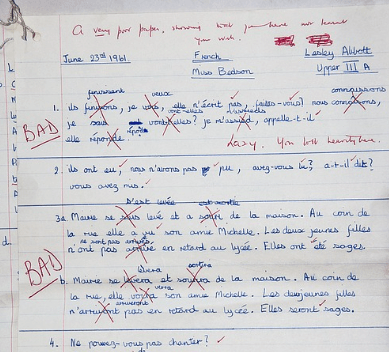 A very poor paper, showing that you have not learnt
your work.
June 23rd 1961 French Lesley Abbott
Miss Bedson Upper III A
finissent veux connaissons
1. ils finissons, je vois, elle n'écrit pas, faites-vous? nous connoisons,
je suis vont-elles? je m'assied, appelle-t-il
BAD
elle réponde
Lazy. You lost
2. ils ont eu, nous n'avons pas pu, avez-vous lu? a-t-il dit?
vous avez mis.
s'est levée est sortie
3a Mauve se levé et a sorti de la maison. Au coin de
la rue elle a vu son amie Michelle. Les deux jeunes filles
ne sont pas arrivées
n'ont pas arrivé en retard au lycée. Elles ont été sages.
BAD
lèvera sortira
b. Mauve se levera et sortira de la maison. Au coin de
verra
la rue, elle voira son amie Michelle. Les deux jeunes filles
arriveront
n'arriveront pas en retard au lycée. Elles seront sages.
4. Ne pouvez-vous pas chanter?